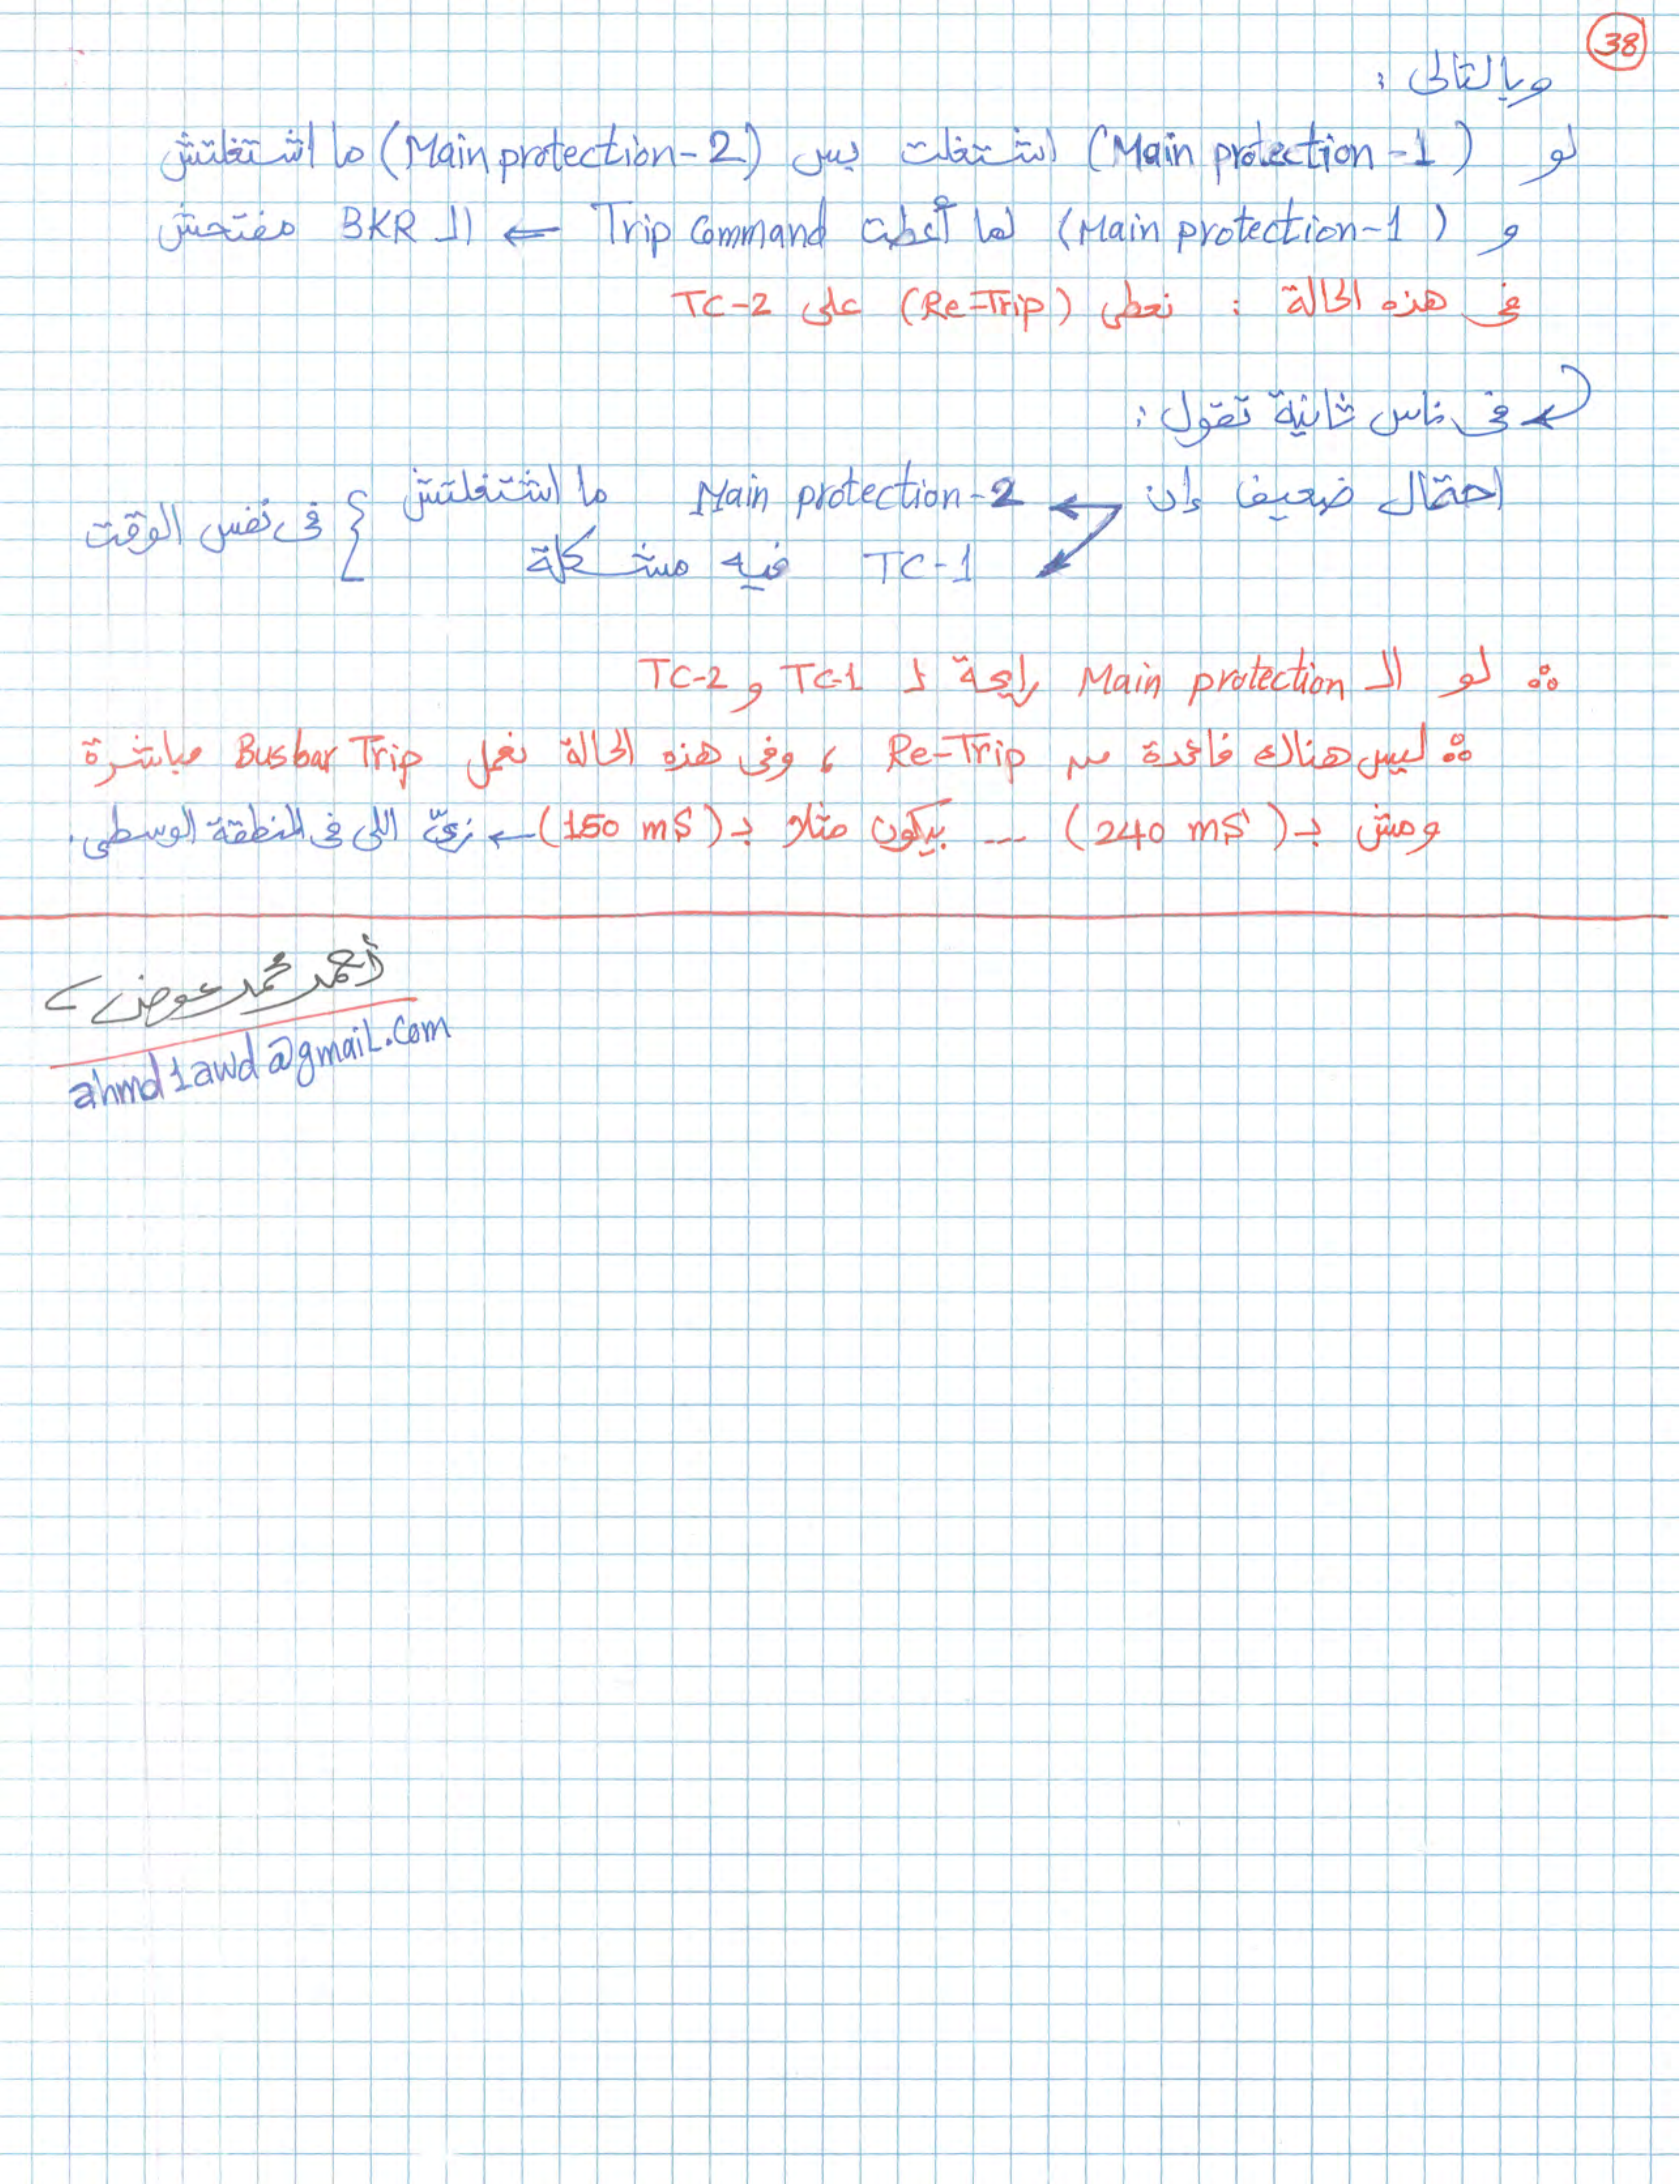 38
وبالتالى :
لو (Main protection-1) اشتغلت بس (Main protection-2) ما اشتغلتش
و (Main protection-1) لما أعطت Trip Command ← الـ BKR مفتحش
فى هذه الحالة : نعطى (Re-Trip) على TC-2
فى ناس ثانية تقول :
احتمال ضعيف إن Main protection-2 ما اشتغلتش
TC-1 فيه مشكلة } فى نفس الوقت
∴ لو الـ Main protection رايحة لـ TC-1 و TC-2
∴ ليس هناك فائدة من Re-Trip ، وفى هذه الحالة نعمل Busbar Trip مباشرة
ومش بـ (240 mS) ... بيكون مثلاً بـ (150 mS) ← زىّ اللى فى المنطقة الوسطى.
أحمد محمد عوض
ahmd1awd@gmail.com